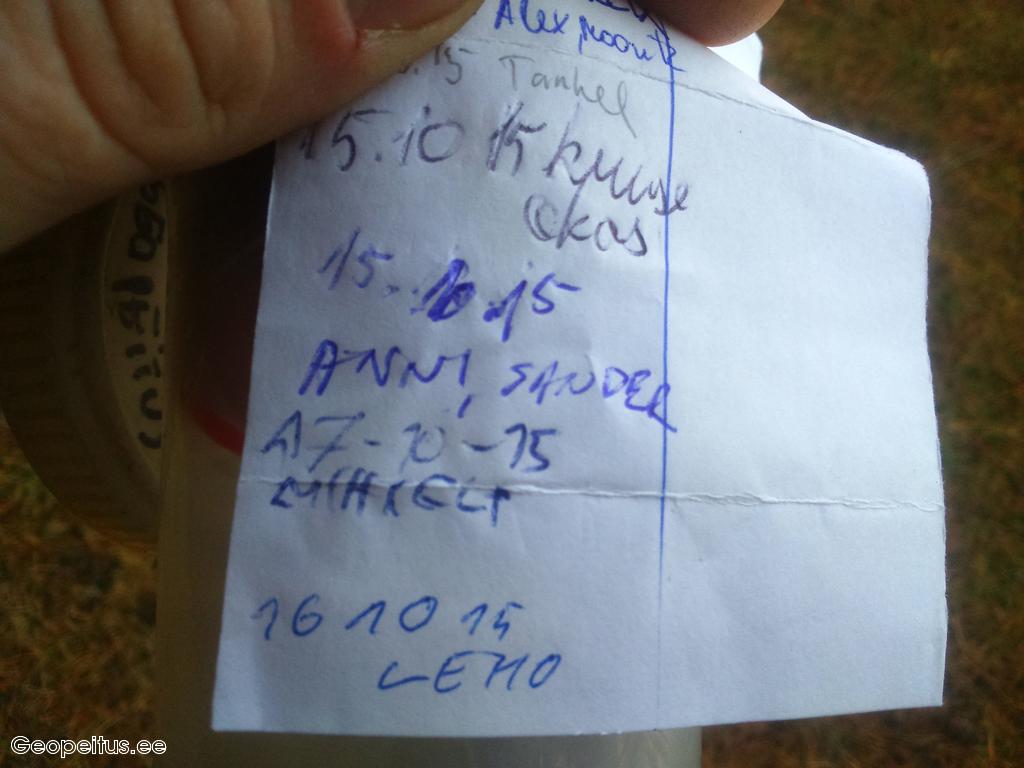 Alex
.15 Tanhel
15.10 15 kruuse
okas
15.10.15
ANNI, SANDER
17-10-15
MIHKEL
16 10 15
LEHO
Geopeitus.ee